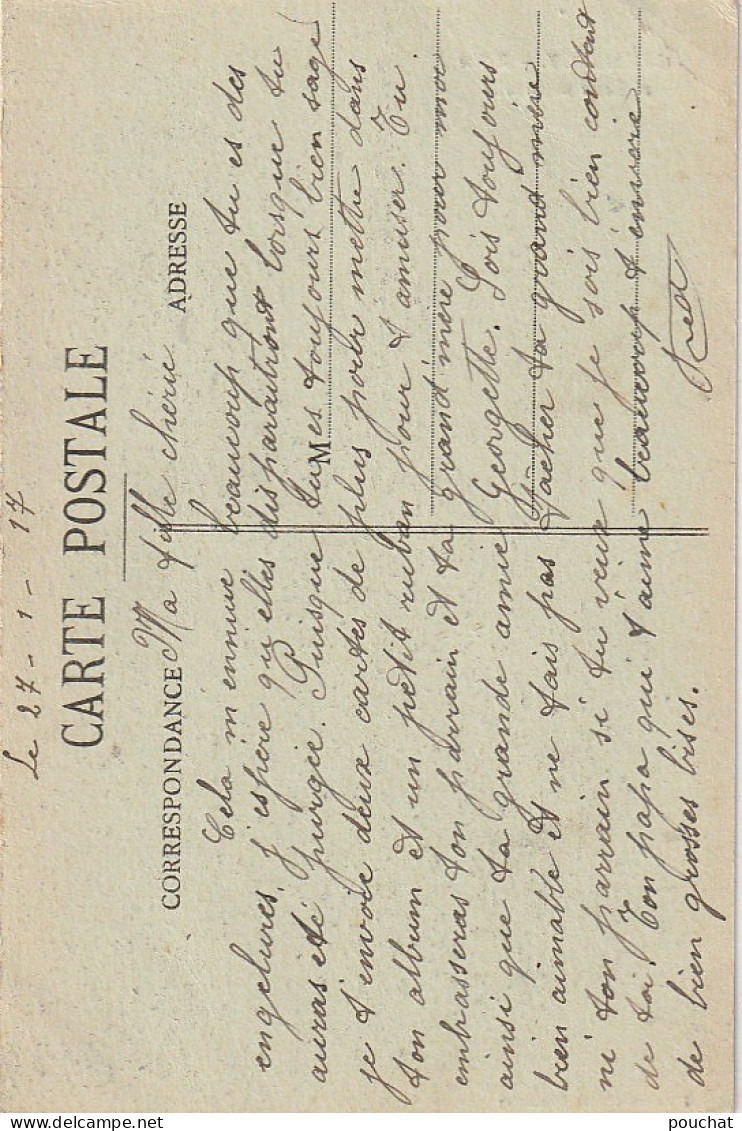 Le 27-1-17
CARTE POSTALE
CORRESPONDANCE
ADRESSE
M
Ma fille chérie
Cela m'ennuie beaucoup que tu es des
engelures, j'espère qu'elles disparaitront lorsque tu
auras été purgée. Puisque tu es toujours bien sage
je t'envoie deux cartes de plus pour mettre dans
ton album et un petit ruban pour t'amuser. Tu
embrasseras ton parrain et ta grand'mère pour moi
ainsi que ta grande amie Georgette. Sois toujours
bien aimable et ne fais pas fâcher ta grand'mère
ni ton parrain si tu veux que je sois bien content
de toi. Ton papa qui t'aime beaucoup t'envoie
de bien grosses bises.
Fred
pouchat
Delcampe.net